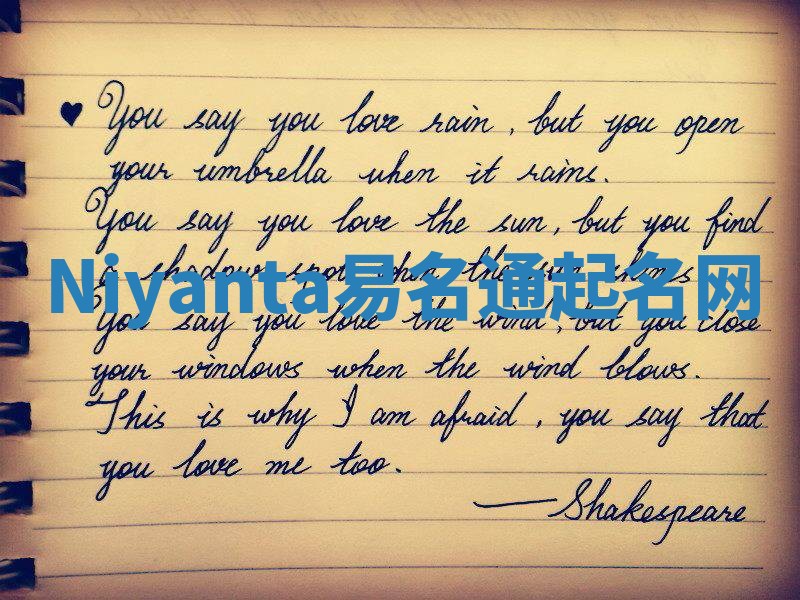 ♥ You say you love rain, but you open
your umbrella when it rains.
You say you love the sun, but you find
a shadow spot when the sun shines
Niyanta易名通起名网
You say you love the wind, but you close
your windows when the wind blows.
This is why I am afraid, you say that
you love me too.
— Shakespeare